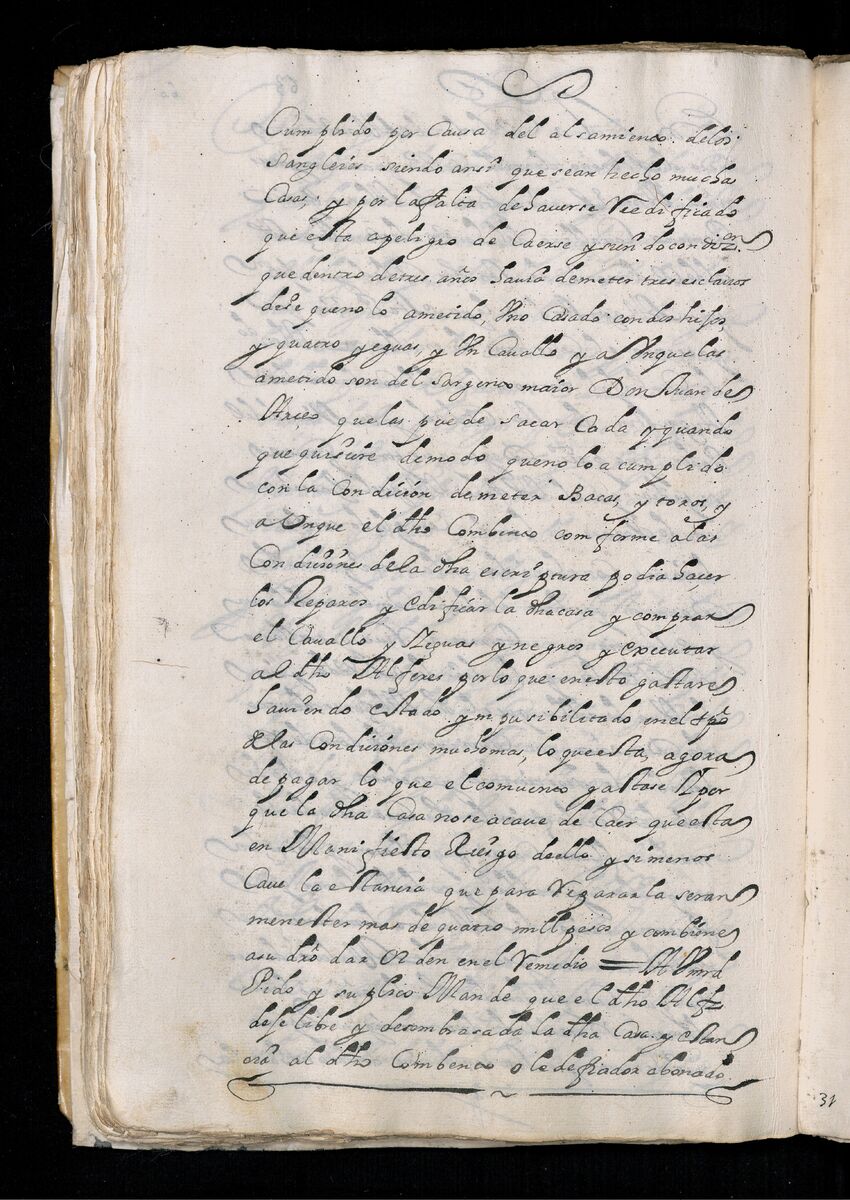 Cumplido por Causa del alsamiento delos
Sangleies siendo ansi que sean hecho muchas
Casas; y por la falta dehaverse Reedificado
que esta apeligro de Caerse y siendo condizon
que dentro detres años havia demeter tres esclavos
dese queno lo ametido, Vno Casado con dos hijos,
y quatro yeguas, y Vn Cavallo y a Vnque las
ametido son del sargento maior Don Juan de
Arceo quelas puede sacar Cada y quando
que quisiere demodo queno lo a cumplido
con la Condición de meter Bacas, y toros, y
a Vnque el dho Combento comforme alas
Condiciones dela dha escriptura podia haçer
los Reparos y edificar la dha casa y comprar
el Cavallo y Yeguas y negros y executar
al dho Alferes por lo que enesto gastare
haviendo estado ymposibilitado en el tpo
delas Condiciones mucho mas, lo que esta, agora
de pagar lo que el comvento gastase Y por
que la dha Casa nose acave de Caer que esta
en Manifiesto Riesgo dello y simenos
Cave la estancia que para Repararla seran
menester mas de quatro mill pesos y combiene
asu dro dar Orden en el Remedio = A Vmrd
Pido y suplico Mande que el dho Alfz
dese libre y desembrasada la dha Casa y estan
cia al dho Combento o le de fiador abonado
31